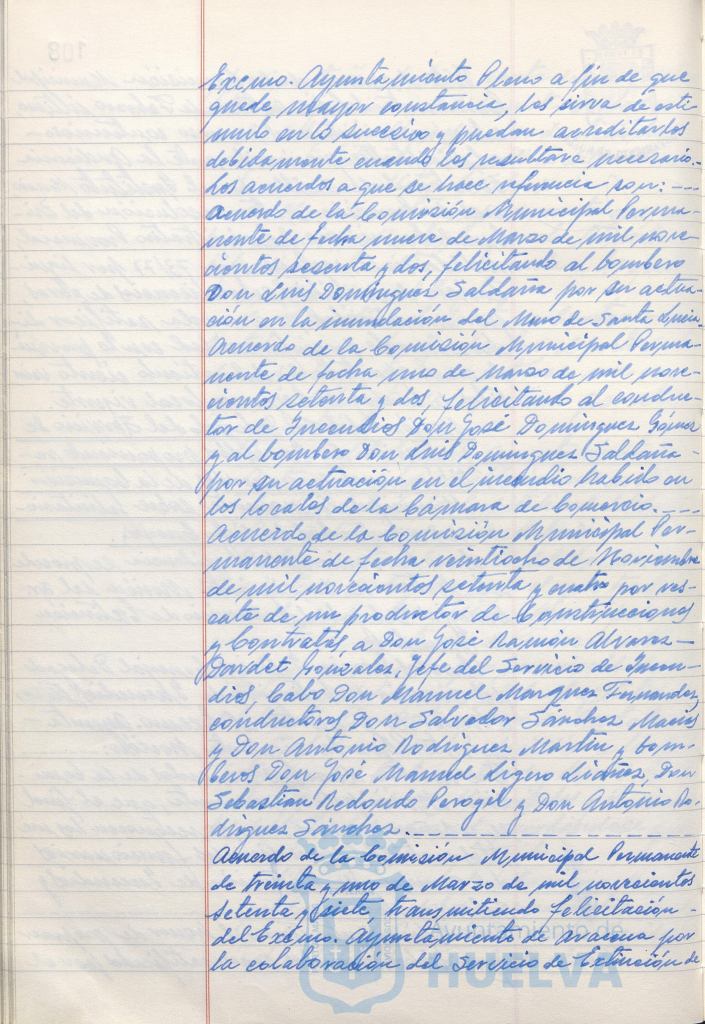 Excmo. Ayuntamiento Pleno a fin de que
quede mayor constancia, les sirva de estí-
mulo en lo sucesivo y puedan acreditarlos
debidamente cuando les resultare necesario.
Los acuerdos a que se hace referencia son: ---
Acuerdo de la Comisión Municipal Perma-
nente de fecha nueve de Marzo de mil nove-
cientos sesenta y dos, felicitando al bombero
Don Luis Domínguez Saldaña por su actua-
ción en la inundación del Muro de Santa Lucía.
Acuerdo de la Comisión Municipal Perma-
nente de fecha uno de Marzo de mil nove-
cientos setenta y dos, felicitando al conduc-
tor de Incendios Don José Domínguez Gómez
y al bombero Don Luis Domínguez Saldaña
por su actuación en el incendio habido en
los locales de la Cámara de Comercio. ---
Acuerdo de la Comisión Municipal Per-
manente de fecha veintiocho de Noviembre
de mil novecientos setenta y cuatro por res-
cate de un productor de Construcciones
y Contratas, a Don José Ramón Alvarez-
Dardet Gonzalez, Jefe del Servicio de Incen-
dios, Cabo Don Manuel Marquez Fernandez,
conductores Don Salvador Sánchez Macías
y Don Antonio Rodríguez Martín y bom-
beros Don José Manuel Ligero Lidñez, Don
Sebastian Redondo Perogil y Don Antonio Ro-
dríguez Sánchez. ---
Acuerdo de la Comisión Municipal Permanente
de treinta y uno de Marzo de mil novecientos
setenta y siete, transmitiendo felicitación -
del Excmo. Ayuntamiento de Aracena por
la colaboración del Servicio de Extinción de
Ayuntamiento de
HUELVA